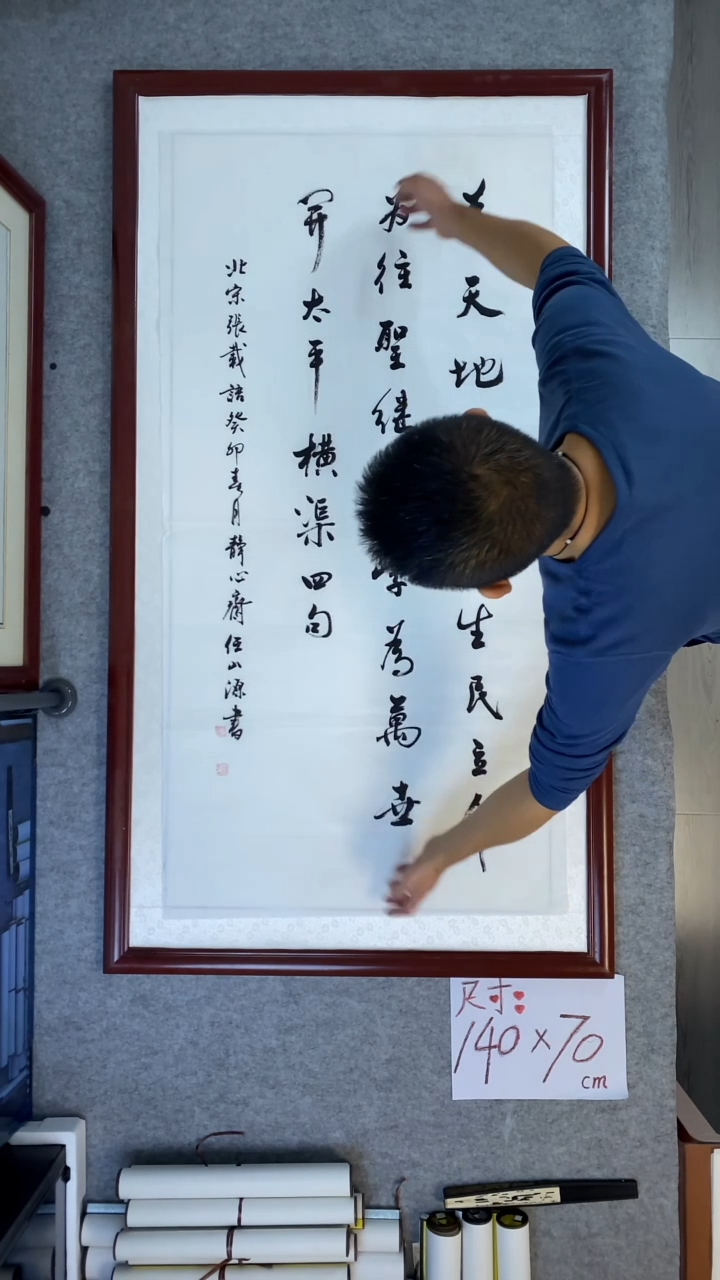 天地生民立
为往聖継為萬世
開太平橫渠四句
北宋張載語癸卯春月靜心齋任山源書
尺寸:
140×70
cm